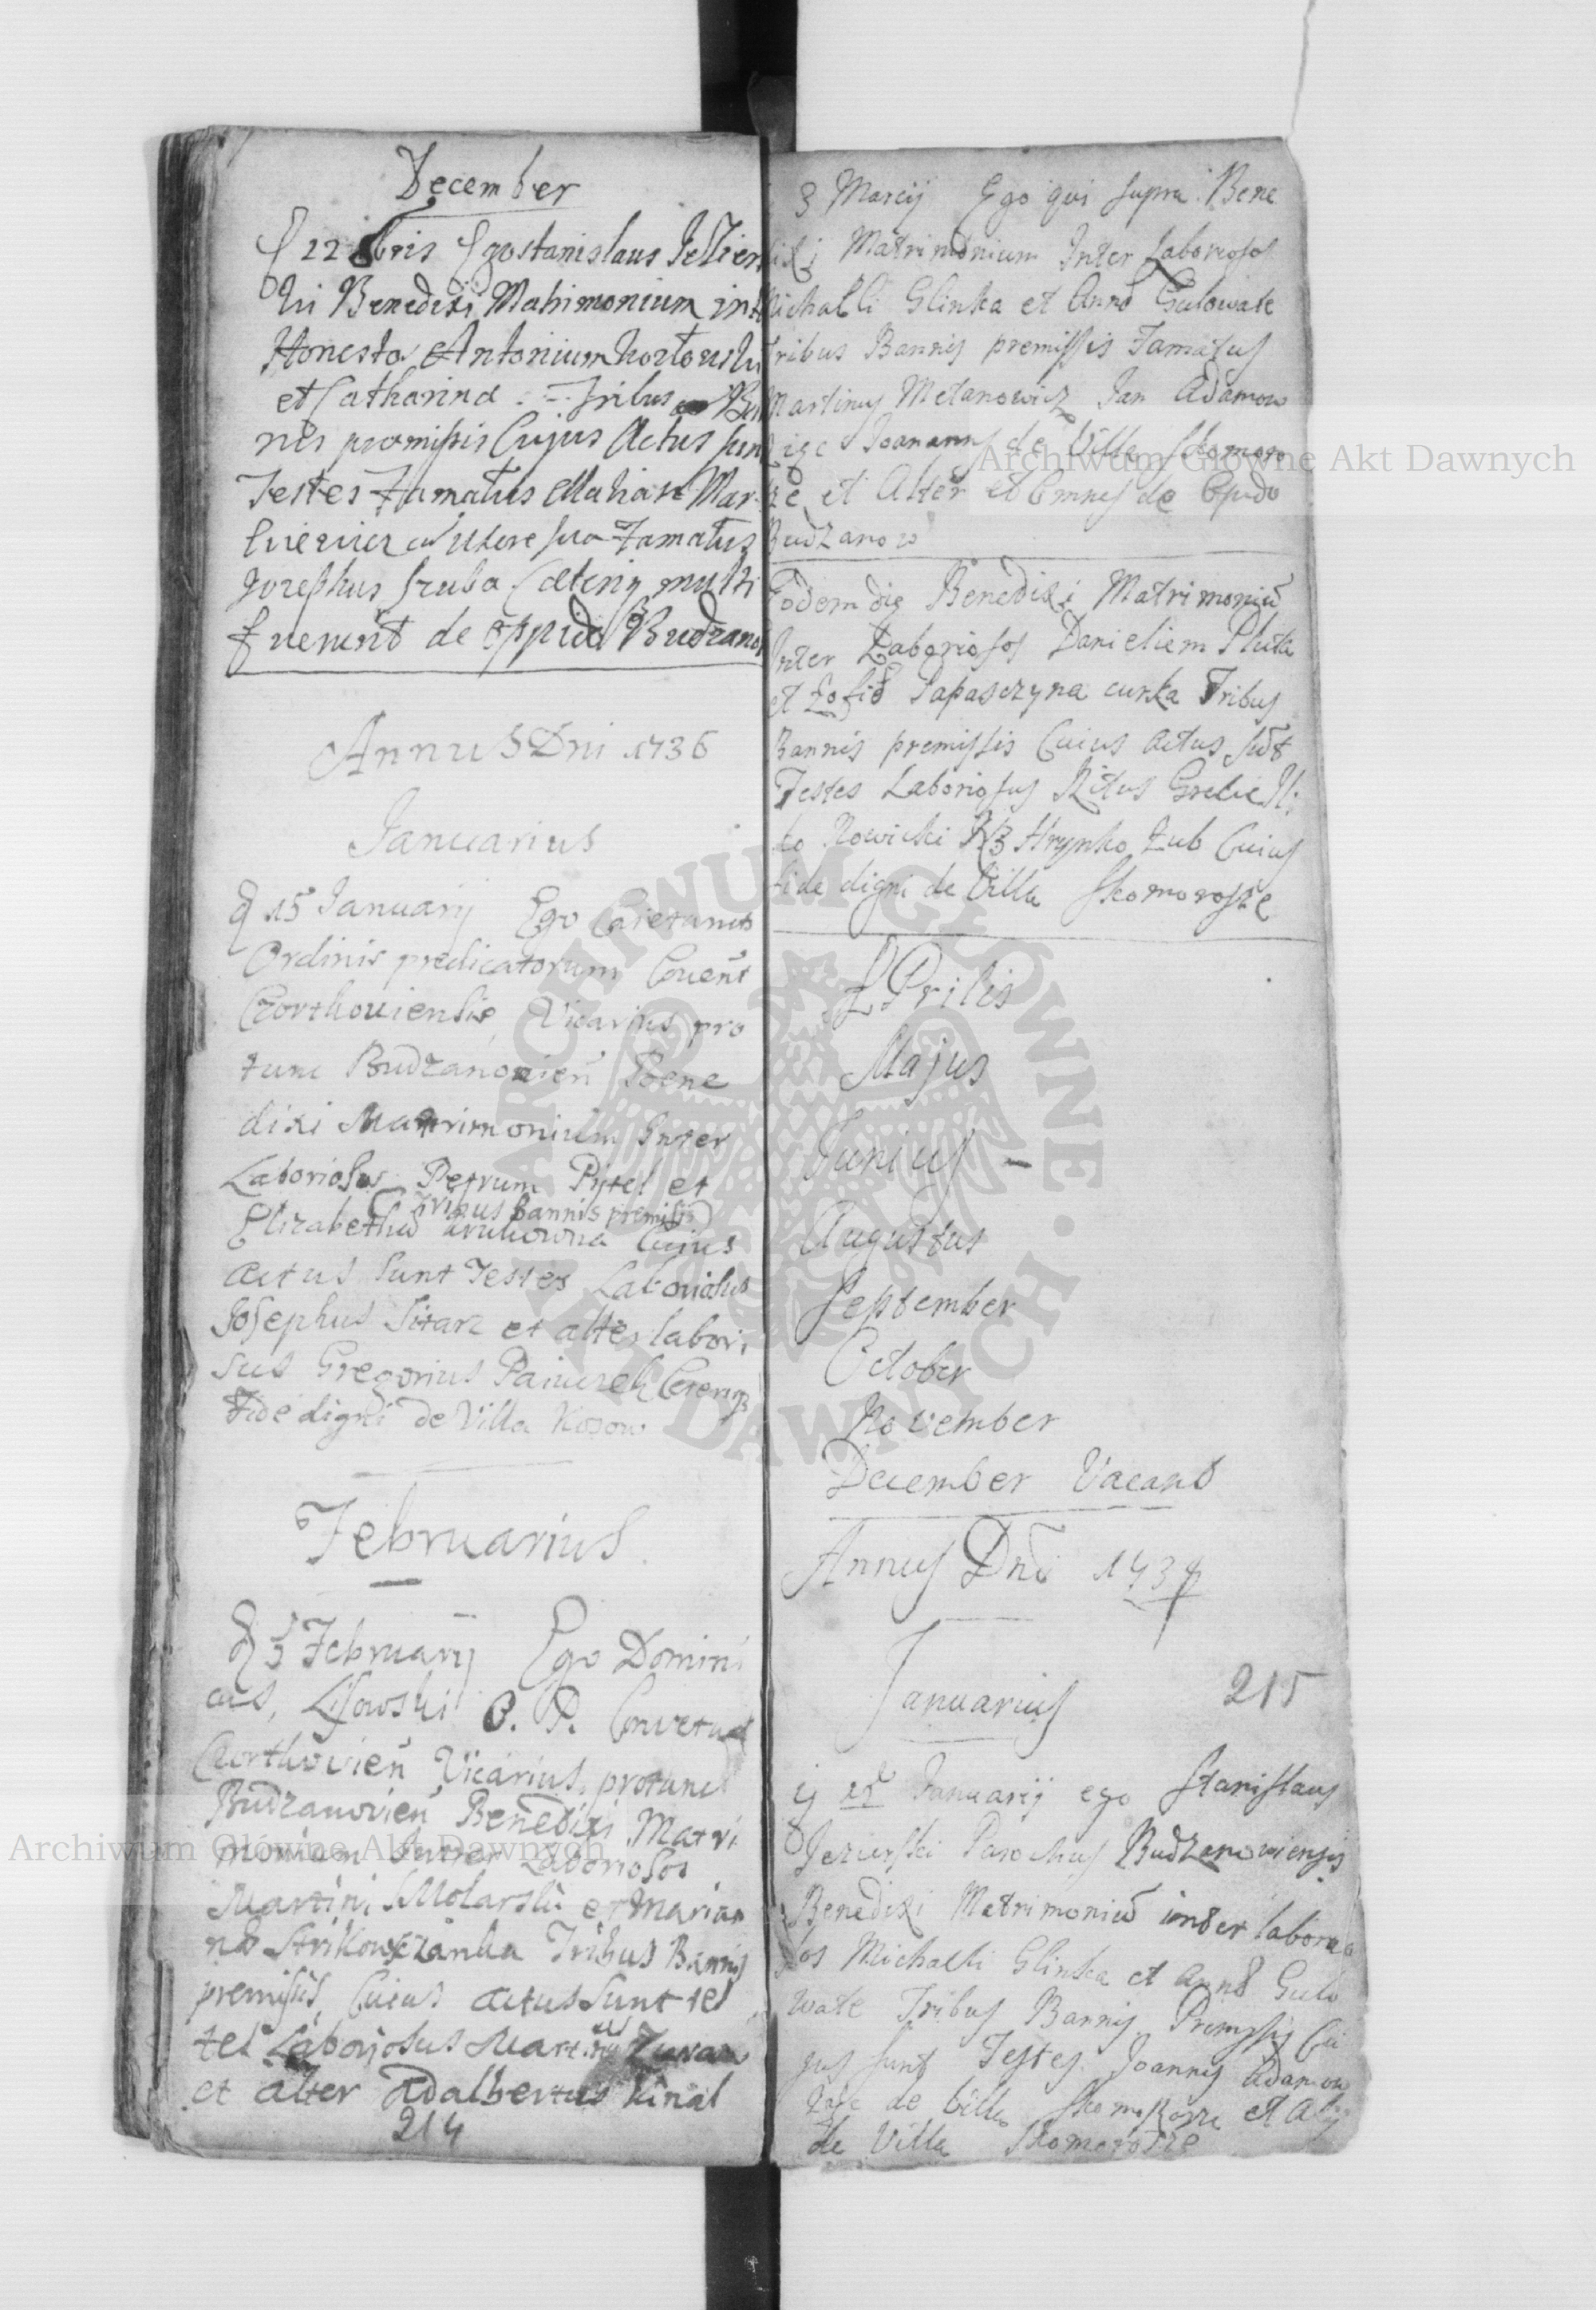 December
22 bris Ego Stanislaus
Benedixi Matrimonium
Honestos Antonium
et Catharina Tribus
nis premissis Cujus Actus sun
Testes Famatus Mar
Uxore sua Famatus
Josephus Szuba multi
fuerunt de oppido Budzanow
Annus Dni 1736
Januarius
d 15 Januarij Ego Caietanus
Ordinis predicatorum Cuent
Czorthouiensis Vicarius pro
tunc Budzanouien Bene
dixi Matrimonium Inter
Laboriosos Petrum Pytel et
Tribus Bannis premissis
Elizabetha Cuius
actus sunt Testes Laboriosus
Josephus Sitarz et alter labori
sus Gregorius
Fide digni de Villa Kosow
Februarius
d 3 Februarij Ego Domini
cus, Lisowski O. P. Conventus
Czorthovien Vicarius, protunc
Budzanovien Benedixi Matri
monium Inter Laboriosos
Martini Molarski et Marian
na Tribus Bannis
premissis, Cuius actus sunt tes
tes Laboriosus Martinus
et alter Adalbertus Kinal
214
3 Marcij Ego qui supra Bene
dixi Matrimonium Inter Laboriosos
Michalli Glinka et Anna Gulowate
Tribus Bannis premissis Famatus
Martinus Metanowicz Jan Adamow
Joannes de Villa Skomoro
et Alter et Omnes de Opido
Budzanow
Eodem die Benedixi Matrimoniu
Inter Laboriosos Danieliem Pluta
et Zofia Papasczyna curka Tribus
Bannis premissis Cuius actus sut
Testes Laboriosus Ritus Grecie
Nowicki Hrynko Zub Cuius
fide digni de Villa Skomorosze
APrilis
Majus
Junius -
Augustus
September
October
November
December Vacant
Annus Dni
Januarius
215
Januarij ego Stanislaus
Jezierski Parochus Budzanowiensis
Benedixi Matrimoniu inter laborio
sos Michalli Glinka et Anna Gulo
wate Tribus Bannis Premissis Cu
jus sunt Testes Joannes Adamow
de Villa et Alij
de Villa Skomorosze
Archiwum Główne Akt Dawnych
Archiwum Główne Akt Dawnych
ARCHIWUM GŁÓWNE AKT DAWNYCH